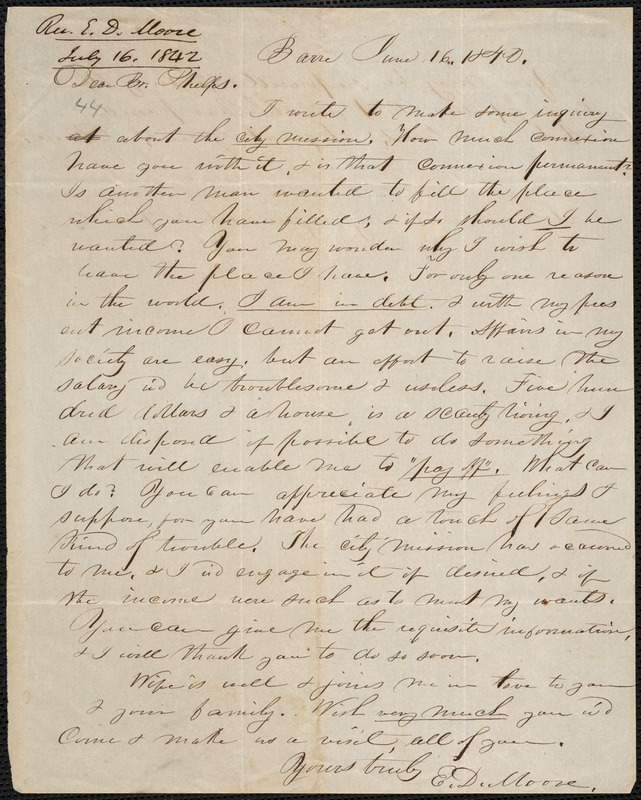 Rev. E. D. Moore
July 16. 1842
Barre June 16. 1842.
Dear Br. Phelps.
44
I write to make some inquiry
at about the city mission. How much connexion
have you with it, & is that connexion permanent?
Is another man wanted to fill the place
which you have filled; & if so should I be
wanted? You may wonder why I wish to
leave the place I have. For only one reason
in the world. I am in debt. & with my pres
ent income I cannot get out. Affairs in my
society are easy, but an effort to raise the
salary w'd be troublesome & useless. Five hun
dred dollars & a house, is a scanty living, & I
am disposed if possible to do something
that will enable me to "pay off". What can
I do? You can appreciate my feelings I
suppose, for you have had a touch of same
kind of trouble. The city mission has occurred
to me, & I w'd engage in it if desired, & if
the income were such as to meet my wants.
You can give me the requisite information,
& I will thank you to do so soon.
Wife is well & joins me in love to you
& your family. Wish very much you w'd
come & make us a visit, all of you.
Yours truly E. D. Moore.